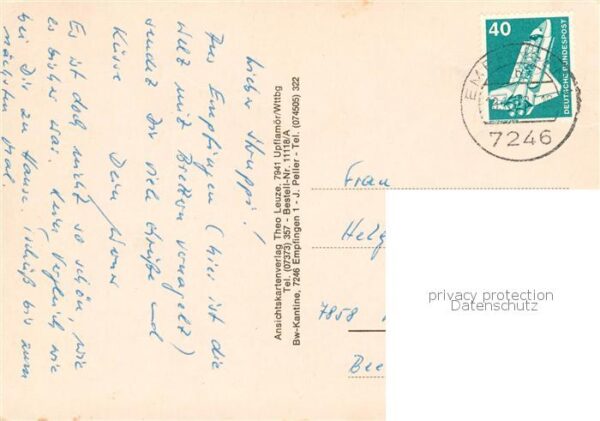 Lieber Schnuppi!
Aus Empfingen (hier ist die
Welt mit Brettern vernagelt)
sendet Dir viele Grüße und
Küsse
Dein
Es ist doch nicht so schön, wie
es bisher war. Kein Vergleich wie
bei Dir zu Hause. Tschüß bis zum
nächsten Mal.
Ansichtskartenverlag Theo Leuze, 7941 Upflamör/Wttbg
Tel. (07373) 357 - Bestell-Nr. 11118/A
Bw-Kantine, 7246 Empfingen 1 - J. Peller - Tel. (074505) 322
40
DEUTSCHE BUNDESPOST
7246
Frau
Helg
7858
privacy protection
Datenschutz